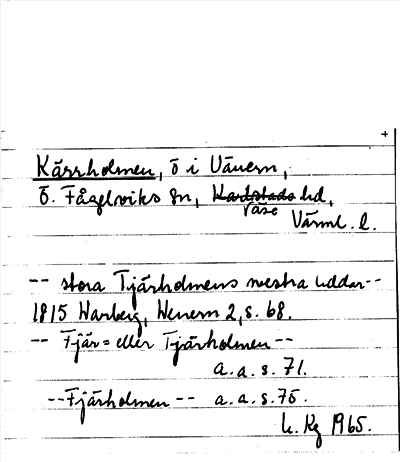 +
Kärrholmen, ö i Vänern,
Ö. Fågelviks sn, Karlstads hd,
Väse
Värml. l.
-- stora Tjärholmens westra uddar --
1815 Warberg, Wenern 2, s. 68.
-- Fjär= eller Tjärholmen --
a.a. s. 71.
-- Fjärholmen -- a.a. s. 75.
Kg 1965.